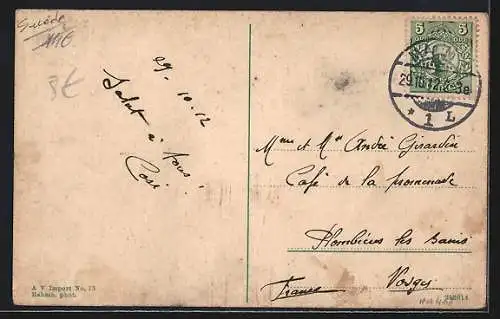 Suède
3€
29.10.12
Salut à tous!
5 5
29.10.12
* 1 L
Mme et Mr André Girardin
Café de la promenade
Plombières les bains
Vosges
France
A V Import No. 13
phot.